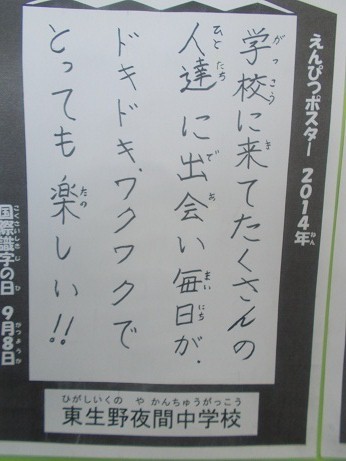 えんぴつポスター 2014年
学校に来てたくさんの
人達に出会い毎日が、
ドキドキ、ワクワクで
とっても楽しい!!
国際識字の日 9月8日
ひがしいくの やかんちゅうがっこう
東生野夜間中学校